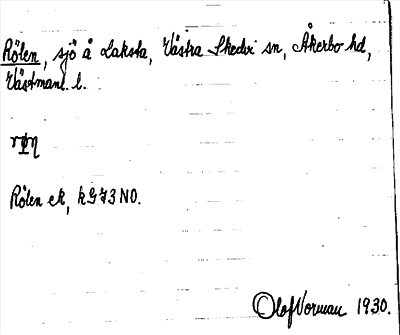 Rölen, sjö å Laksta, Västra Skedvi sn, Åkerbo hd,
Västmanl. l.
Rölen ek, kG73NO.
Olof Norman 1930.